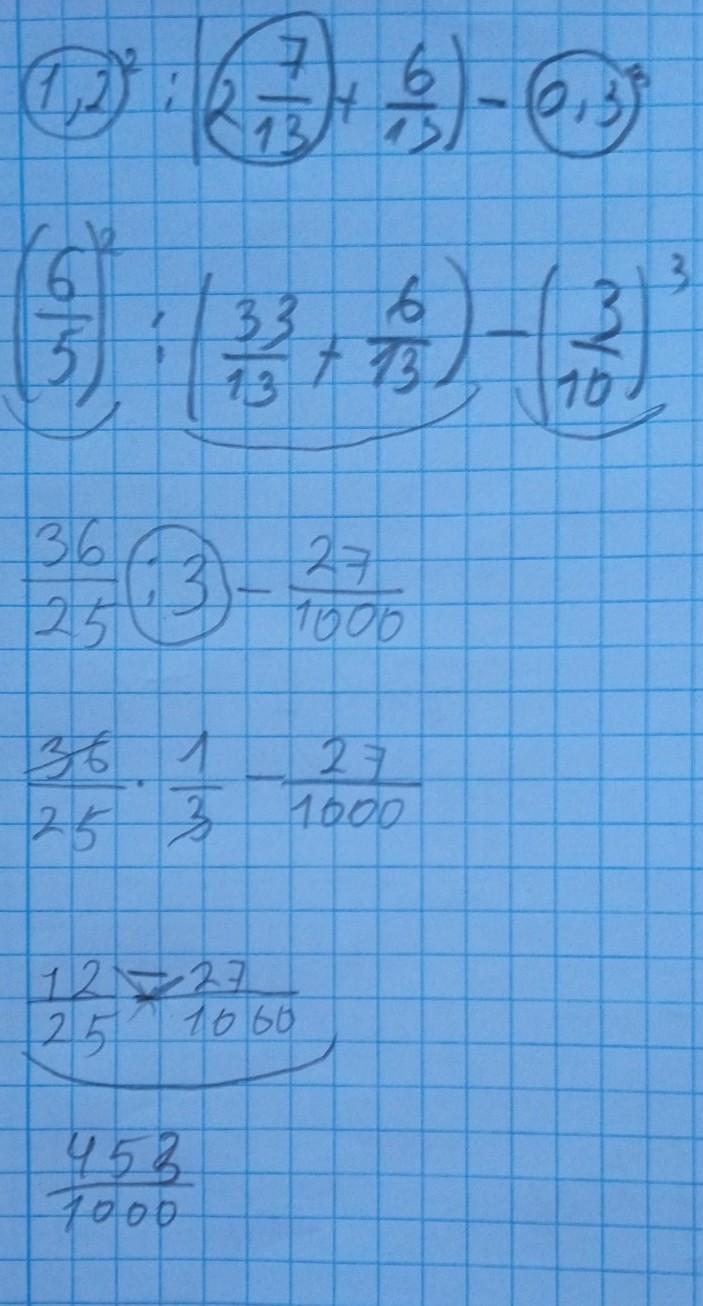 1,2² : (2 7/13 + 6/13) - 0,3³
(6/5)² : (33/13 + 6/13) - (3/10)³
36/25 : 3 - 27/1000
36/25 · 1/3 - 27/1000
12/25 - 27/1000
453/1000